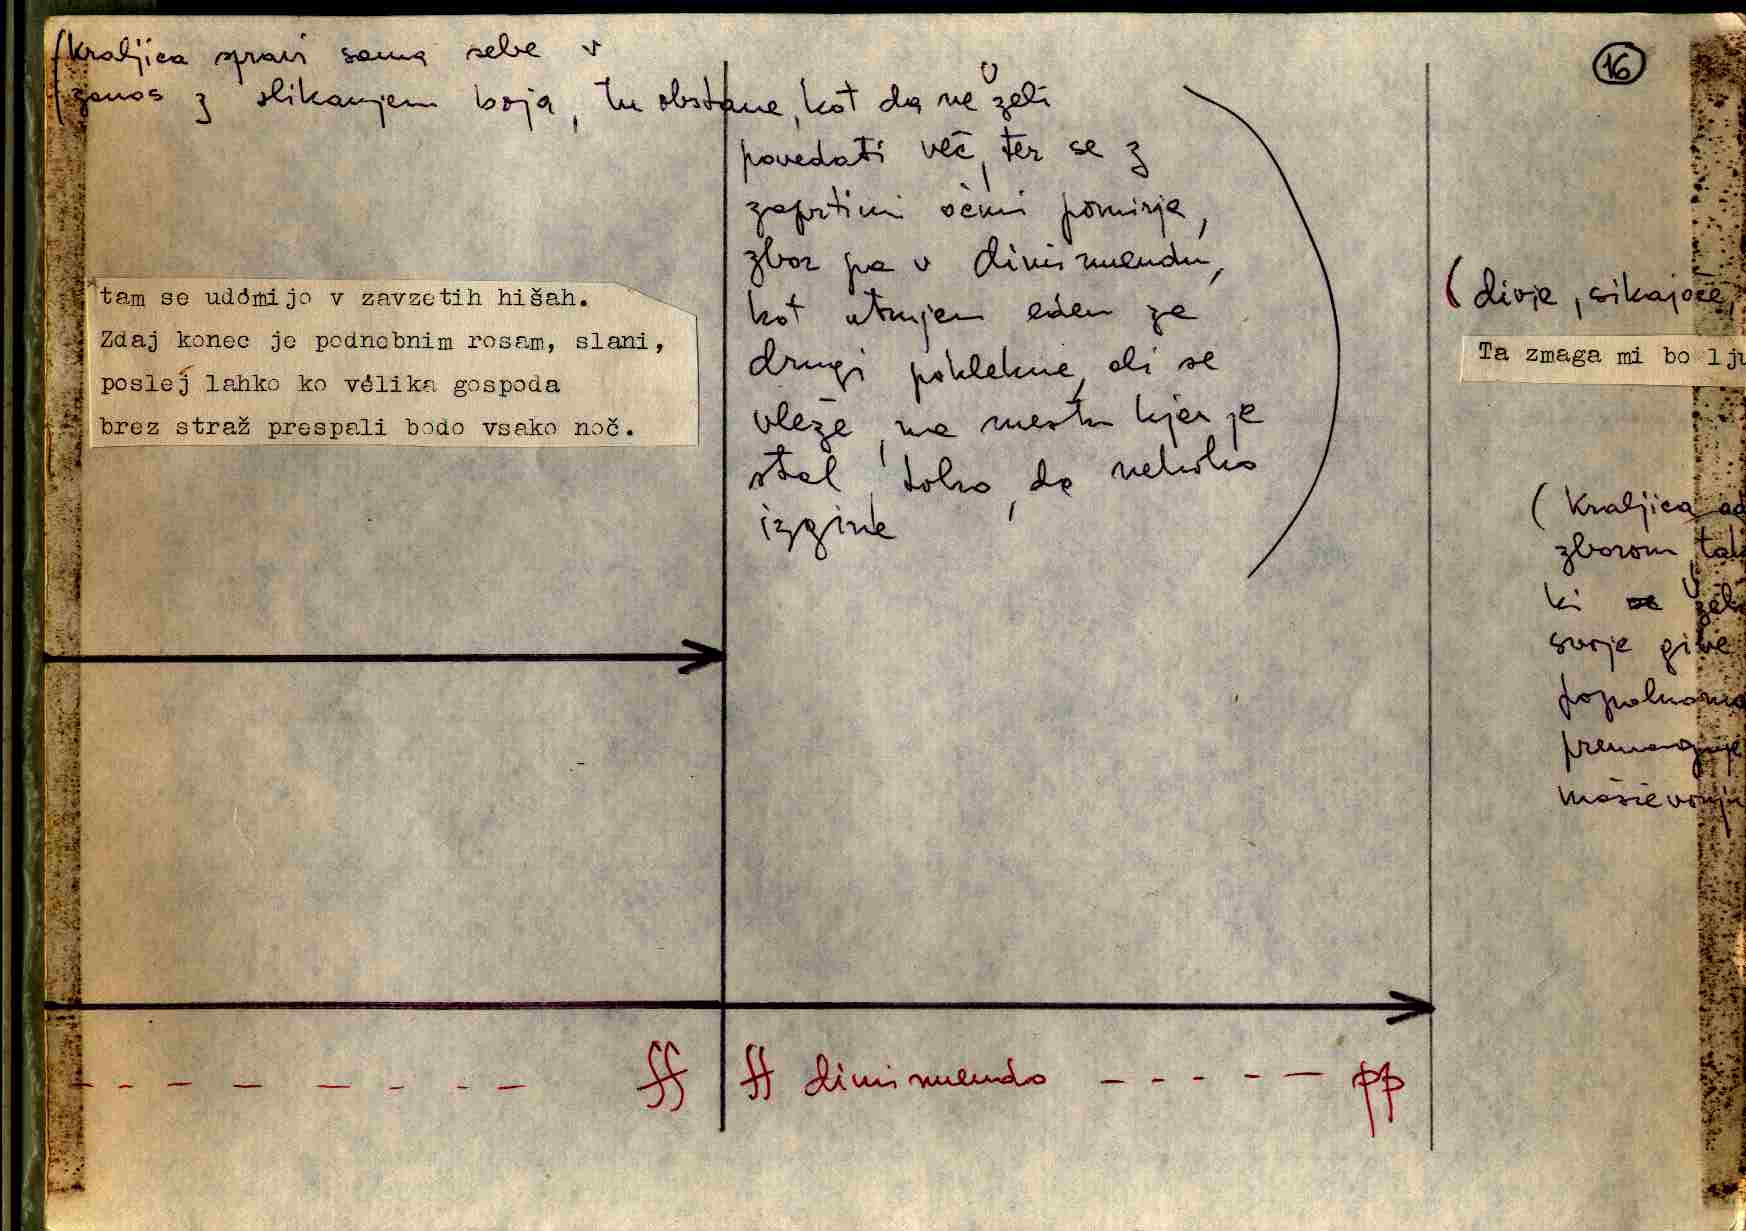 16
(Kraljica spravi sama sebe v
zanos z slikanjem boja, tu obstane, kot da ne želi
povedati več, ter se z
zaprtimi očmi pomirja,
zbor pa v diminuendu,
kot utrujen eden za
drugi poklekne, ali se
vleže, na mestu kjer je
stal, toliko, da nekoliko
izgine
tam se udomijo v zavzetih hišah.
Zdaj konec je podnebnim rosam, slani,
poslej lahko ko vélika gospoda
brez straž prespali bodo vsako noč.
(divje, sikajoče,
Ta zmaga mi bo lju
(Kraljica od
zborom tak
ki že
svoje gibe
popolnoma
premaguje
maščevanj
ff ff diminuendo pp